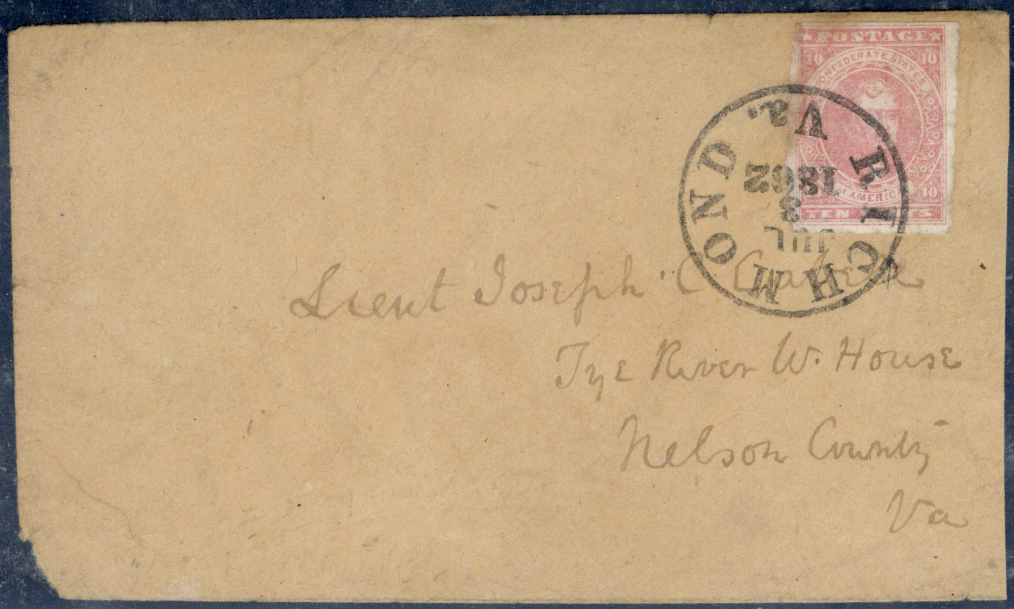 POSTAGE
10 10
CONFEDERATE STATES
OF AMERICA
10
TEN
RICHMOND Va.
JUL
3
1862
Lieut Joseph C Cabell
Tye River W. House
Nelson County
Va